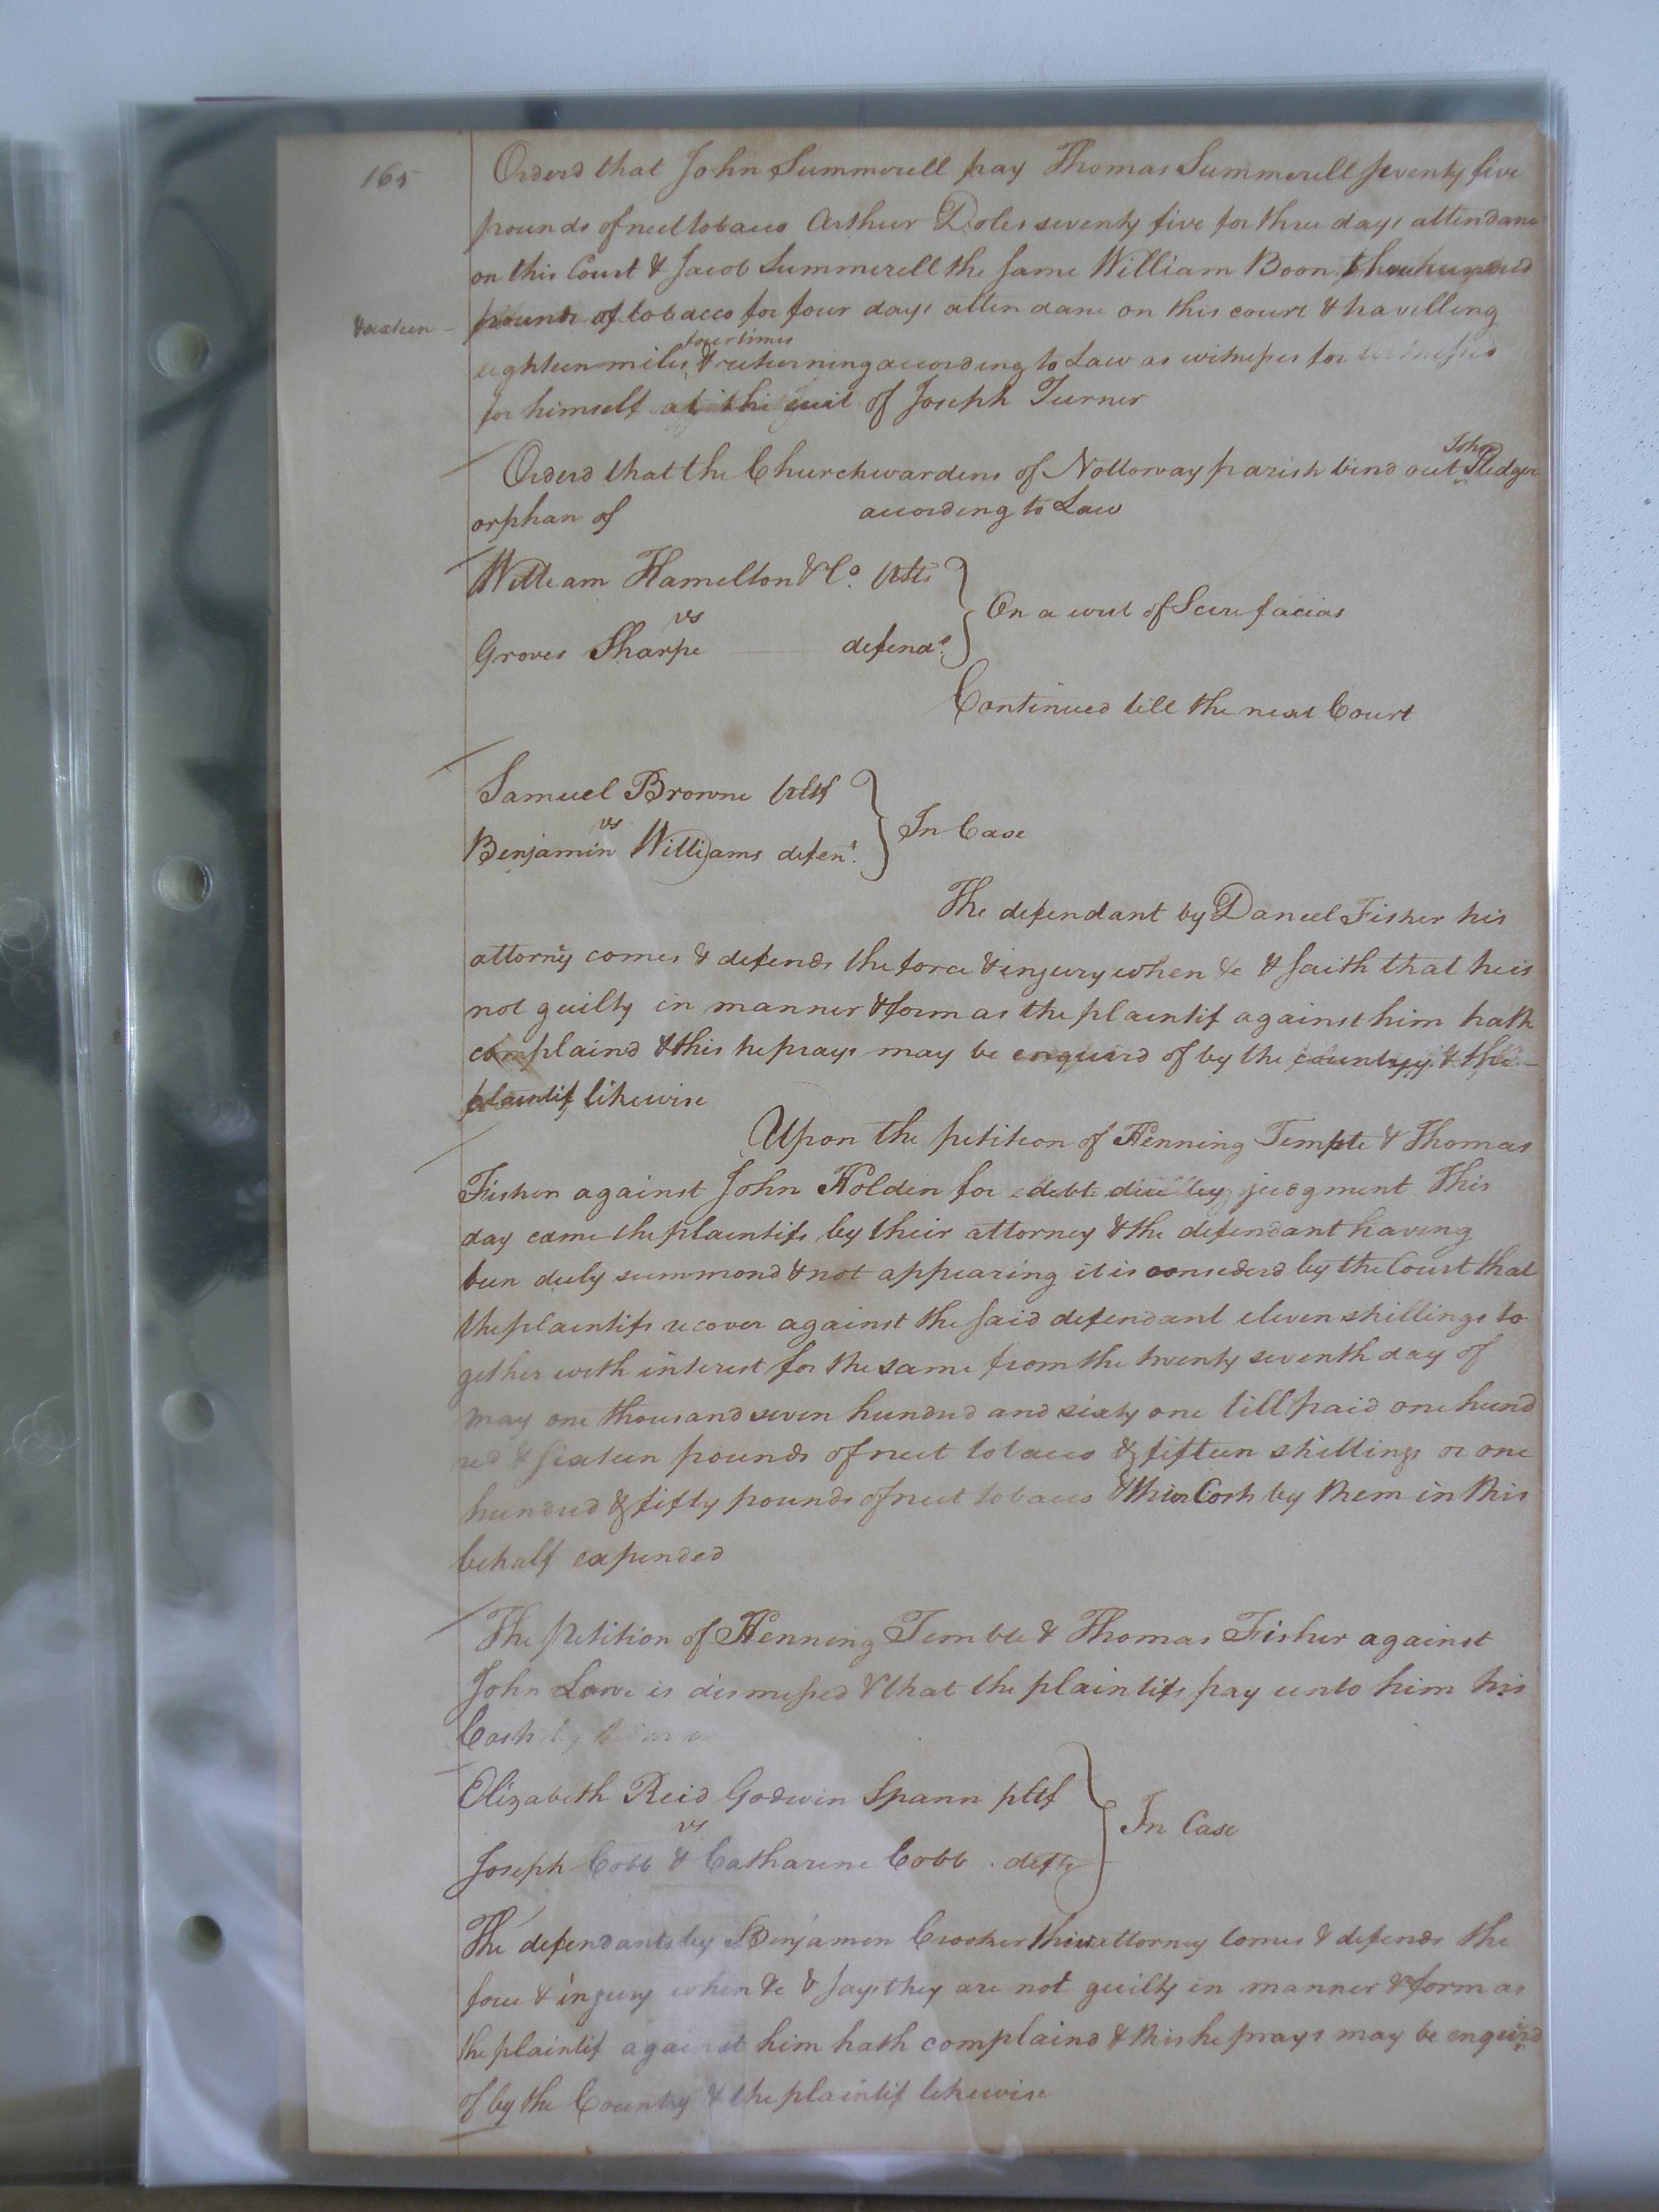 165
Orderd that John Summerell pay Thomas Summerell seventy five
pounds of neet tobacco Arthur Doles seventy five for three days attendance
on this Court & Jacob Summerell the same William Boon three hundred
& sixteen
pounds of tobacco for four days attendance on this court & travelling
four times
eighteen miles & returning according to Law as witnesses for witnesses
for himself at the suit of Joseph Turner
John
Orderd that the Churchwardens of Nottoway parish bind out Pledger
orphan of according to Law
William Hamelton & Co. plts
On a writ of Scire facias
vs
Groves Sharpe defendt.
Continued till the next Court
Samuel Browne pltf
In Case
vs
Benjamin Williams defent.
The defendant by Daniel Fisher his
attorny comes & defends the force & injury when &c & saith that he is
not guilty in manner & form as the plaintif against him hath
complaind & this he prays may be enquird of by the country & the
plaintif likewise
Upon the petition of Henning Temple & Thomas
Fisher against John Holden for debt due by judgment This
day came the plaintifs by their attorney & the defendant having
been duly summond & not appearing it is considerd by the Court that
the plaintifs recover against the said defendant eleven shillings to
gether with interest for the same from the twenty seventh day of
may one thousand seven hundred and sixty one till paid one hund
red & sixteen pounds of neet tobacco & fifteen shillings or one
hundred & fifty pounds of neet tobacco & their Costs by them in this
behalf expended
The petition of Henning Temble & Thomas Fisher against
John Lowe is dismissed & that the plaintifs pay unto him his
Costs by
Elizabeth Reid Godwin Spann pltf
In Case
vs
Joseph Cobb & Catharine Cobb defts
The defendants by Benjamen Crocker their attorney comes & defends the
force & injury when &c & says they are not guilty in manner & form as
the plaintif against him hath complaind & this he prays may be enquird
of by the Country & the plaintif likewise